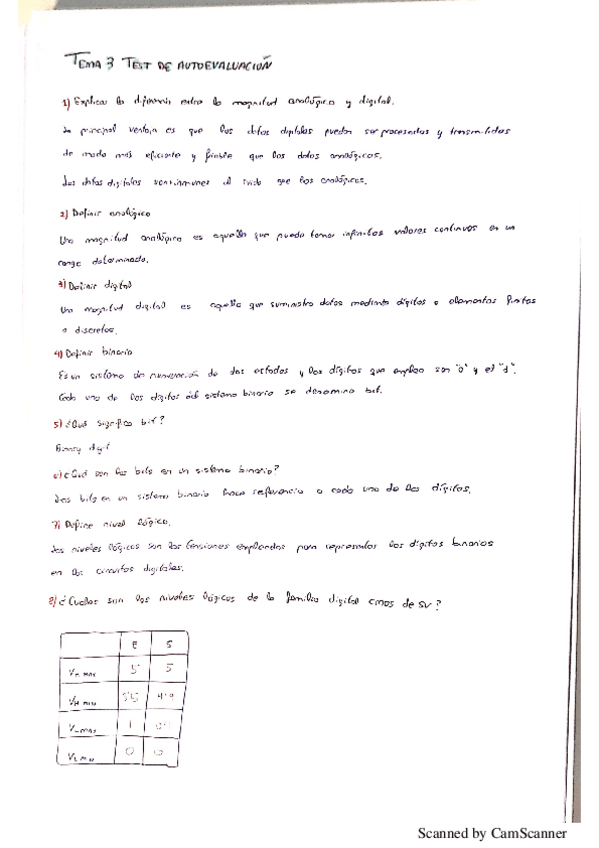 TEMA 3 TEST DE AUTOEVALUACIÓN
1) Explicar la diferencia entre la magnitud analógica y digital.
La principal ventaja es que los datos digitales pueden ser procesados y transmitidos
de modo más eficiente y fiable que los datos analógicos.
Los datos digitales son inmunes al ruido que los analógicos.
2) Definir analógico
Una magnitud analógica es aquella que puede tomar infinitos valores continuos en un
rango determinado.
3) Definir digital
Una magnitud digital es aquella que suministra datos mediante dígitos o elementos finitos
o discretos.
4) Definir binario
Es un sistema de numeración de dos estados y los dígitos que emplea son "0" y el "1".
Cada uno de los dígitos del sistema binario se denomina bit.
5) ¿Qué significa bit?
Binary digit
6) ¿Qué son los bits en un sistema binario?
Los bits en un sistema binario hace referencia a cada uno de los dígitos.
7) Define nivel lógico.
Los niveles lógicos son las tensiones empleadas para representar los dígitos binarios
en los circuitos digitales.
8) ¿Cuales son los niveles lógicos de la familia digital CMOS de 5V?
E S
VH max 5 5
VH min 4'9
VL max 1
VL min 0 0
Scanned by CamScanner